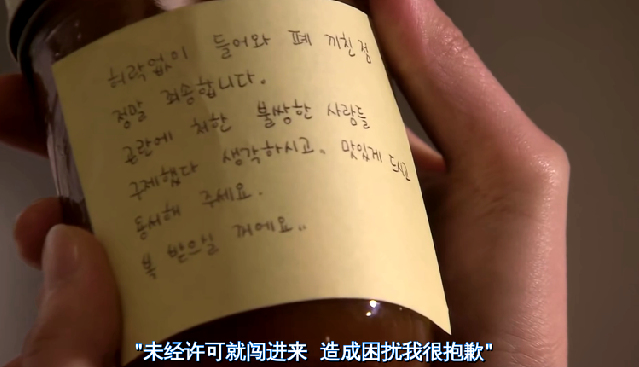 허락없이 들어와 폐 끼친점
정말 죄송합니다.
곤란에 처한 불쌍한 사람들
구제했다 생각하시고. 맛있게 드시고
용서해 주세요.
복 받으실 꺼에요..
"未经许可就闯进来 造成困扰我很抱歉"